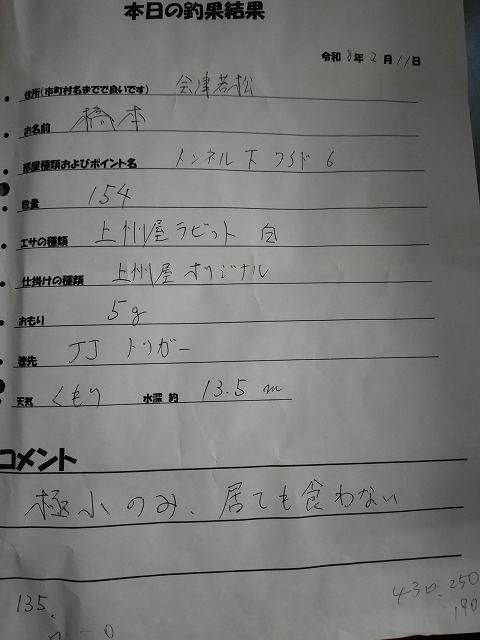 本日の釣果結果
令和 8年 2月 11日
住所(市町村名までで良いです) 会津若松
お名前 橋本
部屋種類およびポイント名 トンネル下 ワイド 6
数量 154
エサの種類 上州屋ラビット 白
仕掛けの種類 上州屋オリジナル
おもり 5g
穂先 JJ トリガー
天気 くもり 水深 約 13.5 m
コメント
極小のみ、居ても食わない
430.250
135.
190